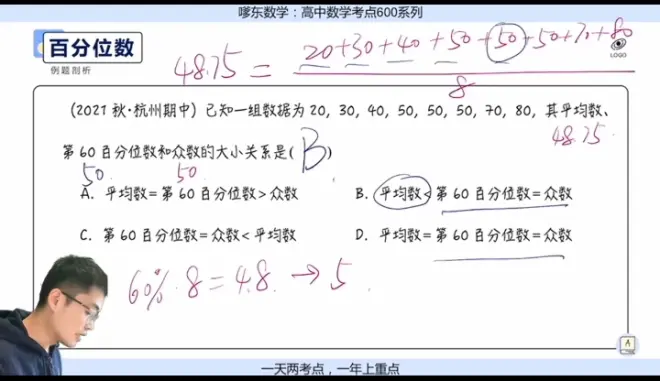 嗲东数学：高中数学考点600系列
百分位数
例题剖析
48.75 = 20+30+40+50+50+50+70+80 / 8
LOGO
(2021 秋·杭州期中) 已知一组数据为 20, 30, 40, 50, 50, 50, 70, 80, 其平均数、
48.75
第 60 百分位数和众数的大小关系是( B )
50. 50.
A. 平均数= 第 60 百分位数> 众数
B. 平均数< 第 60 百分位数= 众数
C. 第 60 百分位数= 众数< 平均数
D. 平均数= 第 60 百分位数= 众数
60%·8=4.8. → 5.
A
一天两考点，一年上重点